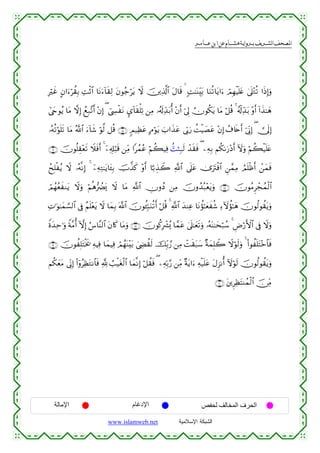 المصحف الشريف برواية هشام عن ابن عامر
وَإِذَا تُتْلَىٰ عَلَيْهِمْ ءَايَاتُنَا بَيِّنَٰتٍ ۙ قَالَ ٱلَّذِينَ لَا يَرْجُونَ لِقَآءَنَا ٱئْتِ بِقُرْءَانٍ غَيْرِ
هَٰذَآ أَوْ بَدِّلْهُ ۚ قُلْ مَا يَكُونُ لِىٓ أَنْ أُبَدِّلَهُۥ مِن تِلْقَآئِ نَفْسِىٓ ۖ إِنْ أَتَّبِعُ إِلَّا مَا يُوحَىٰٓ
إِلَىَّ ۖ إِنِّىٓ أَخَافُ إِنْ عَصَيْتُ رَبِّى عَذَابَ يَوْمٍ عَظِيمٍ ۝ قُل لَّوْ شَآءَ ٱللَّهُ مَا تَلَوْتُهُۥ
عَلَيْكُمْ وَلَآ أَدْرَىٰكُم بِهِۦ ۖ فَقَدْ لَبِثتُّ فِيكُمْ عُمُرًا مِّن قَبْلِهِۦٓ ۚ أَفَلَا تَعْقِلُونَ ۝
فَمَنْ أَظْلَمُ مِمَّنِ ٱفْتَرَىٰ عَلَى ٱللَّهِ كَذِبًا أَوْ كَذَّبَ بِـَٔايَٰتِهِۦٓ ۚ إِنَّهُۥ لَا يُفْلِحُ
ٱلْمُجْرِمُونَ ۝ وَيَعْبُدُونَ مِن دُونِ ٱللَّهِ مَا لَا يَضُرُّهُمْ وَلَا يَنفَعُهُمْ
وَيَقُولُونَ هَٰٓؤُلَآءِ شُفَعَٰٓؤُنَا عِندَ ٱللَّهِ ۚ قُلْ أَتُنَبِّـُٔونَ ٱللَّهَ بِمَا لَا يَعْلَمُ فِى ٱلسَّمَٰوَٰتِ
وَلَا فِى ٱلْأَرْضِ ۚ سُبْحَٰنَهُۥ وَتَعَٰلَىٰ عَمَّا يُشْرِكُونَ ۝ وَمَا كَانَ ٱلنَّاسُ إِلَّآ أُمَّةً وَٰحِدَةً
فَٱخْتَلَفُوا۟ ۚ وَلَوْلَا كَلِمَةٌ سَبَقَتْ مِن رَّبِّكَ لَقُضِىَ بَيْنَهُمْ فِيمَا فِيهِ يَخْتَلِفُونَ ۝
وَيَقُولُونَ لَوْلَآ أُنزِلَ عَلَيْهِ ءَايَةٌ مِّن رَّبِّهِۦ ۖ فَقُلْ إِنَّمَا ٱلْغَيْبُ لِلَّهِ فَٱنتَظِرُوٓا۟ إِنِّى مَعَكُم
مِّنَ ٱلْمُنتَظِرِينَ ۝
الحرف المخالف لحفص الإدغام الإمالة
الشبكة الإسلامية www.islamweb.net